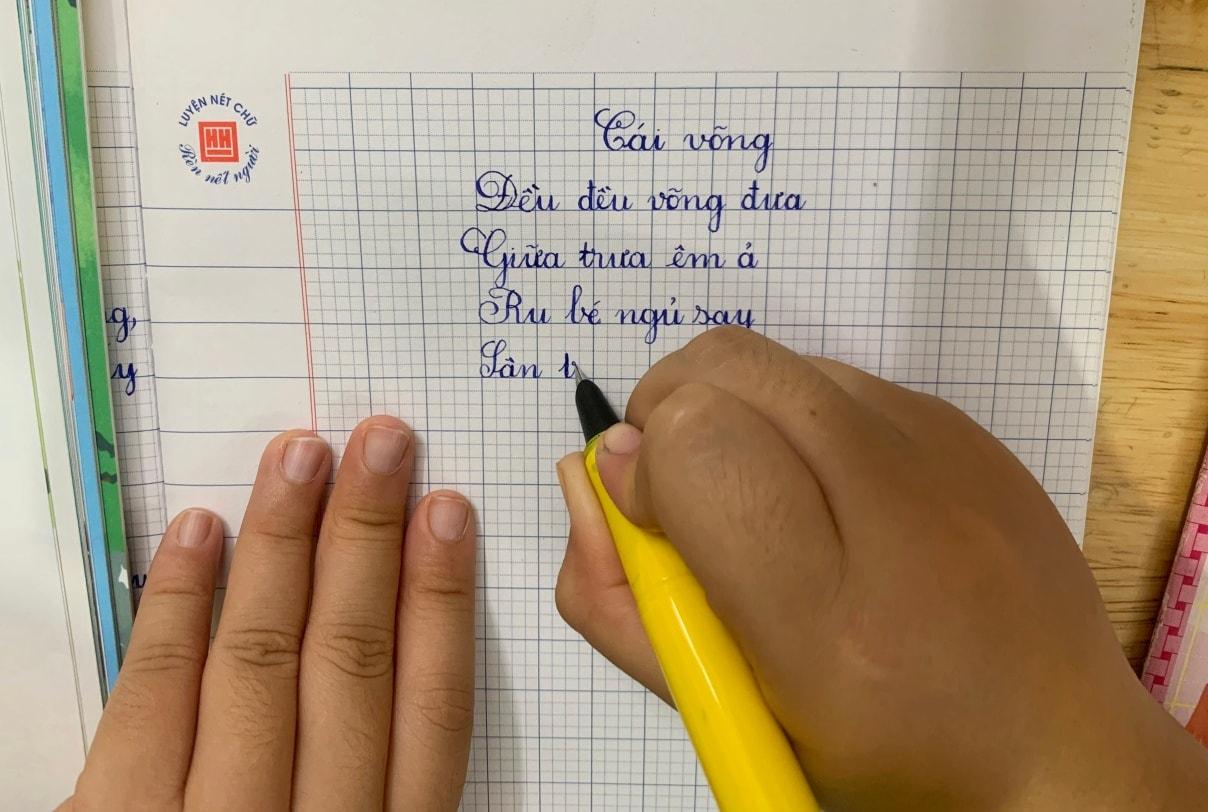 LUYỆN NÉT CHỮ
HH
Rèn nết người
Cái võng
Đều đều võng đưa
Giữa trưa êm ả
Ru bé ngủ say
Sân
g,
y